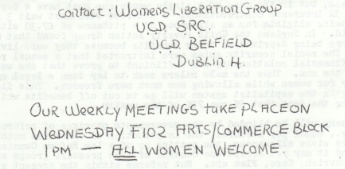 contact: Womens Liberation Group
U.C.D. SRC.
U.C.D. BELFIELD
DUBLIN 4.
OUR WEEKLY MEETINGS take PLACE ON
WEDNESDAY F102 ARTS/COMMERCE BLOCK
1PM — ALL WOMEN WELCOME.